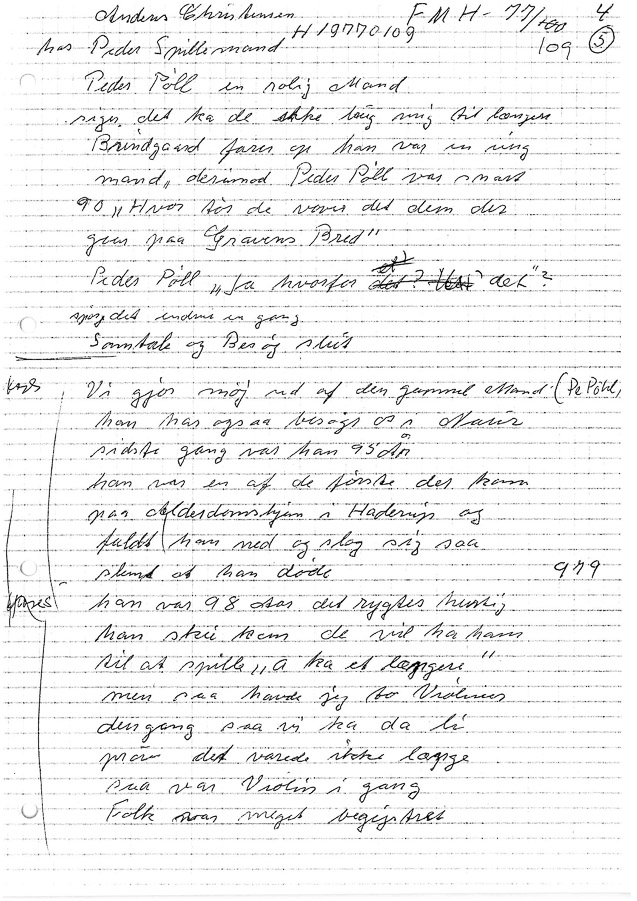 Anders Christensen F M H - 77/100 4
H19770109 109 5
hos Peder Spillemand
Peder Pöll en rolig Mand
siger det ka de ikke
mig til længere
Brindgaard farer op han var en ung
mand,, derimod Peder Pöll var snart
90 ,,Hvor tör de vover det dem der
gaar paa Gravens Bred"
Peder Pöll ,,Ja hvorfor det"?
det endnu en gang
Samtale og Besög slut
Vi gjor möj ud af den gammel Mand (Pe Pöhl,
han har ogsaa besögt os i Naur
sidste gang var han 95 Aar
han var en af de förste der kom
paa Alderdomshjem i Haderup og
faldt han ned og slog sig saa
slemt at han döde 979
han var 98 Aar det rygtes hurtig
han skie kom de vil ha ham
til at spille ,,A ka et længere"
men saa havde jeg to Violiner
dengang saa vi ka da li
pröv det varede ikke længe
saa var Violin i gang
Folk var meget begejstret